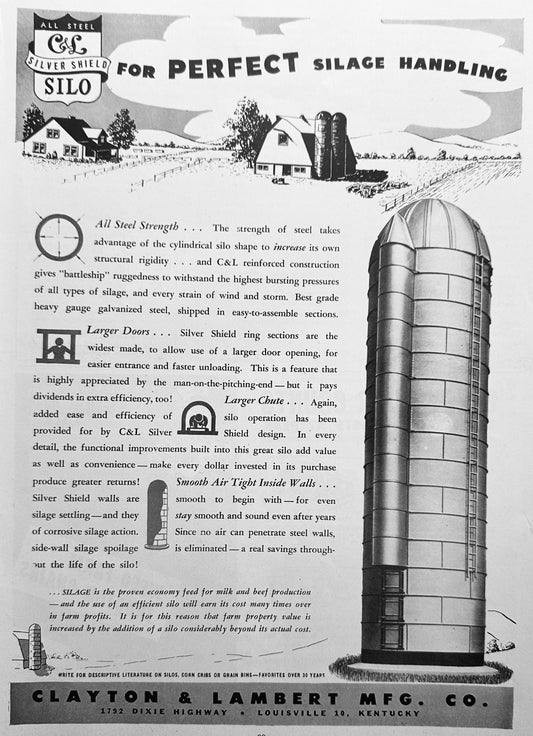 ALL STEEL
C&L
SILVER SHIELD
SILO
FOR PERFECT SILAGE HANDLING
All Steel Strength . . . The strength of steel takes
advantage of the cylindrical silo shape to increase its own
structural rigidity . . . and C&L reinforced construction
gives "battleship" ruggedness to withstand the highest bursting pressures
of all types of silage, and every strain of wind and storm. Best grade
heavy gauge galvanized steel, shipped in easy-to-assemble sections.
Larger Doors . . . Silver Shield ring sections are the
widest made, to allow use of a larger door opening, for
easier entrance and faster unloading. This is a feature that
is highly appreciated by the man-on-the-pitching-end — but it pays
dividends in extra efficiency, too! Larger Chute . . . Again,
added ease and efficiency of silo operation has been
provided for by C&L Silver Shield design. In every
detail, the functional improvements built into this great silo add value
as well as convenience — make every dollar invested in its purchase
produce greater returns! Smooth Air Tight Inside Walls . . .
Silver Shield walls are smooth to begin with — for even
silage settling — and they stay smooth and sound even after years
of corrosive silage action. Since no air can penetrate steel walls,
side-wall silage spoilage is eliminated — a real savings through-
out the life of the silo!
. . . SILAGE is the proven economy feed for milk and beef production
— and the use of an efficient silo will earn its cost many times over
in farm profits. It is for this reason that farm property value is
increased by the addition of a silo considerably beyond its actual cost.
WRITE FOR DESCRIPTIVE LITERATURE ON SILOS, CORN CRIBS OR GRAIN BINS—FAVORITES OVER 30 YEARS
CLAYTON & LAMBERT MFG. CO.
1792 DIXIE HIGHWAY • LOUISVILLE 10, KENTUCKY